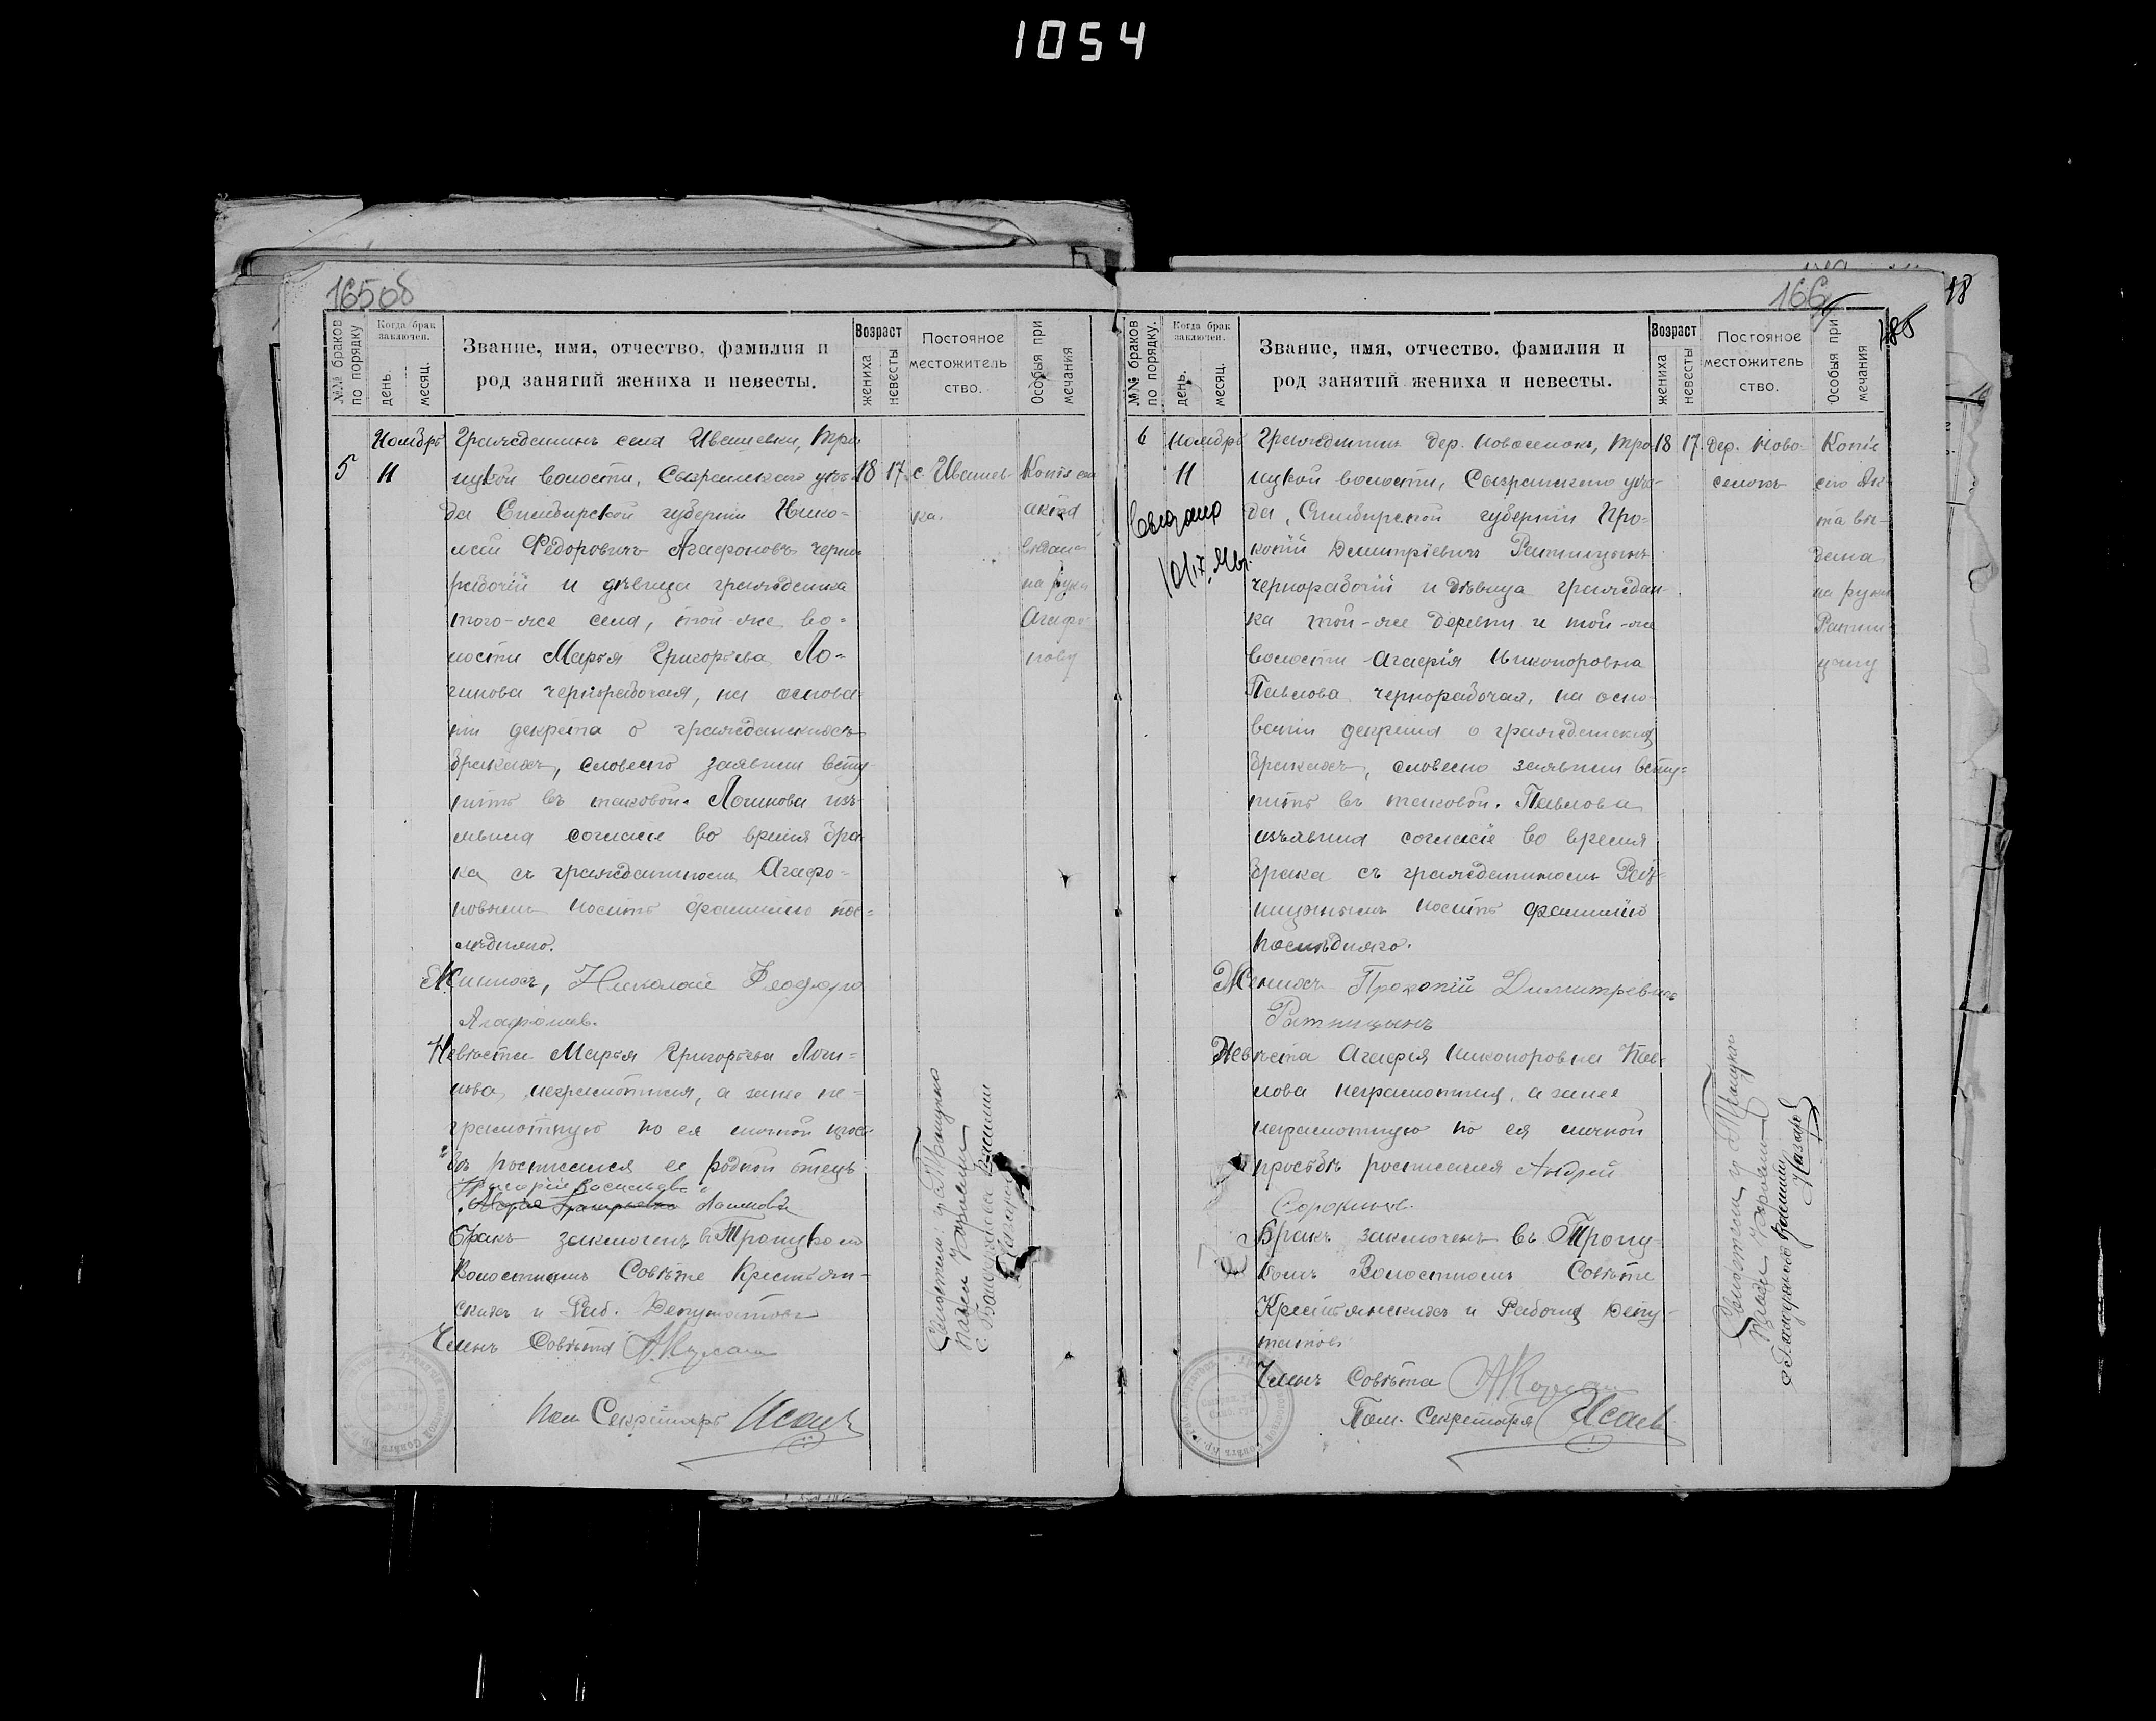 1054
165об
№№ браков по порядку
Когда брак заключен.
день.
месяц.
Звание, имя, отчество, фамилия и
род занятий жениха и невесты.
Возраст
жениха
невесты
Постояное
местожитель
ство.
Особыя при
мечания
5
Ноябрь
11
Гражданинъ села Ивашевки, Тро
ицкой волости, Сызранскаго уѣз-
да Симбирской губернiи Нико-
лай Федоровичъ Агафоновъ черно
рабочiй и дѣвица гражданка
того-же села, той-же во-
лости Марья Григорьева Ло-
гинова чернорабочая, на основа
нiи декрета о гражданскихъ
бракахъ, словесно заявили всту-
пить въ таковой. Логинова изъ-
явила согласiе во время бра
ка съ гражданиномъ Агафо-
новымъ носить фамилiю пос-
лѣдняго.
Женихъ, Николай Феодоро
Агафонов.
Невѣста Марья Григорьева Логи-
нова, неграмотная, а за нее не-
грамотную по ея личной прось
бѣ росписался ее родной отецъ
Григорiй Васильевъ
Логиновъ
Бракъ заключенъ въ Троицкомъ
Волостномъ Совѣте Крестьян-
скихъ и Раб. Депутатовъ
Членъ Совѣта
Пом Секретаря Исаев
18
17
с Ивашев-
ка.
Копiя сего
акта
выдана
на руки
Агафо-
нову
166
185
18
№№ браков по порядку.
Когда брак заключен.
день.
месяц.
Звание, имя, отчество, фамилия и
род занятий жениха и невесты.
Возраст
жениха
невесты
Постояное
местожитель
ство.
Особыя при
мечания
6
Ноябрь
11
Гражданинъ дер. Новоселокъ, Тро-
ицкой волости, Сызранскаго уѣз-
да, Симбирской губернiи Про-
копiй Димитрiевичъ Ратницынъ
чернорабочiй и дѣвица граждан-
ка той-же деревни и той-же
волости Агафiя Никоноровна
Павлова чернорабочая, на осно-
ванiи декрета о гражданских
бракахъ, словесно заявили всту-
пить въ таковой. Павлова
изъявила согласiе во время
брака съ гражданиномъ Рат-
ницынымъ носить фамилiю
послѣдняго.
Женихъ Прокопiй Димитревичъ
Ратницынъ
Невѣста Агафiя Никоноровна Пав-
лова неграмотная, а за нее
неграмотную по ея личной
просьбѣ росписался Андрей
Сорокинъ.
Бракъ заключенъ въ Троиц-
комъ Волостномъ Совѣте
Крестьянскихъ и Рабочих Депу-
татовъ
Членъ Совѣта
Пом. Секретаря Исаев
18
17
Дер. Ново-
селокъ
Копiя
сего Ак
та вы-
дана
на руки
Ратни-
цыну